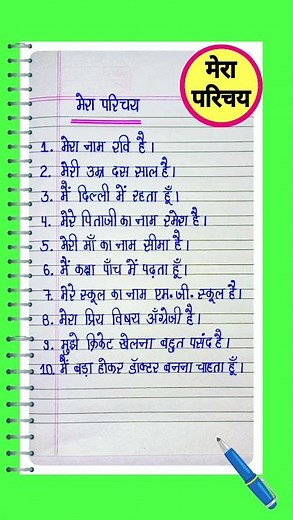 मेरा
परिचय
मेरा परिचय
1. मेरा नाम रवि है।
2. मेरी उम्र दस साल है।
3. मैं दिल्ली में रहता हूँ।
4. मेरे पिताजी का नाम रमेश है।
5. मेरी माँ का नाम सीमा है।
6. मैं कक्षा पाँच में पढ़ता हूँ।
7. मेरे स्कूल का नाम एम॰ जी॰ स्कूल है।
8. मेरा प्रिय विषय अँग्रेजी है।
9. मुझे क्रिकेट खेलना बहुत पसंद है।
10. मैं बड़ा होकर डॉक्टर बनना चाहता हूँ।